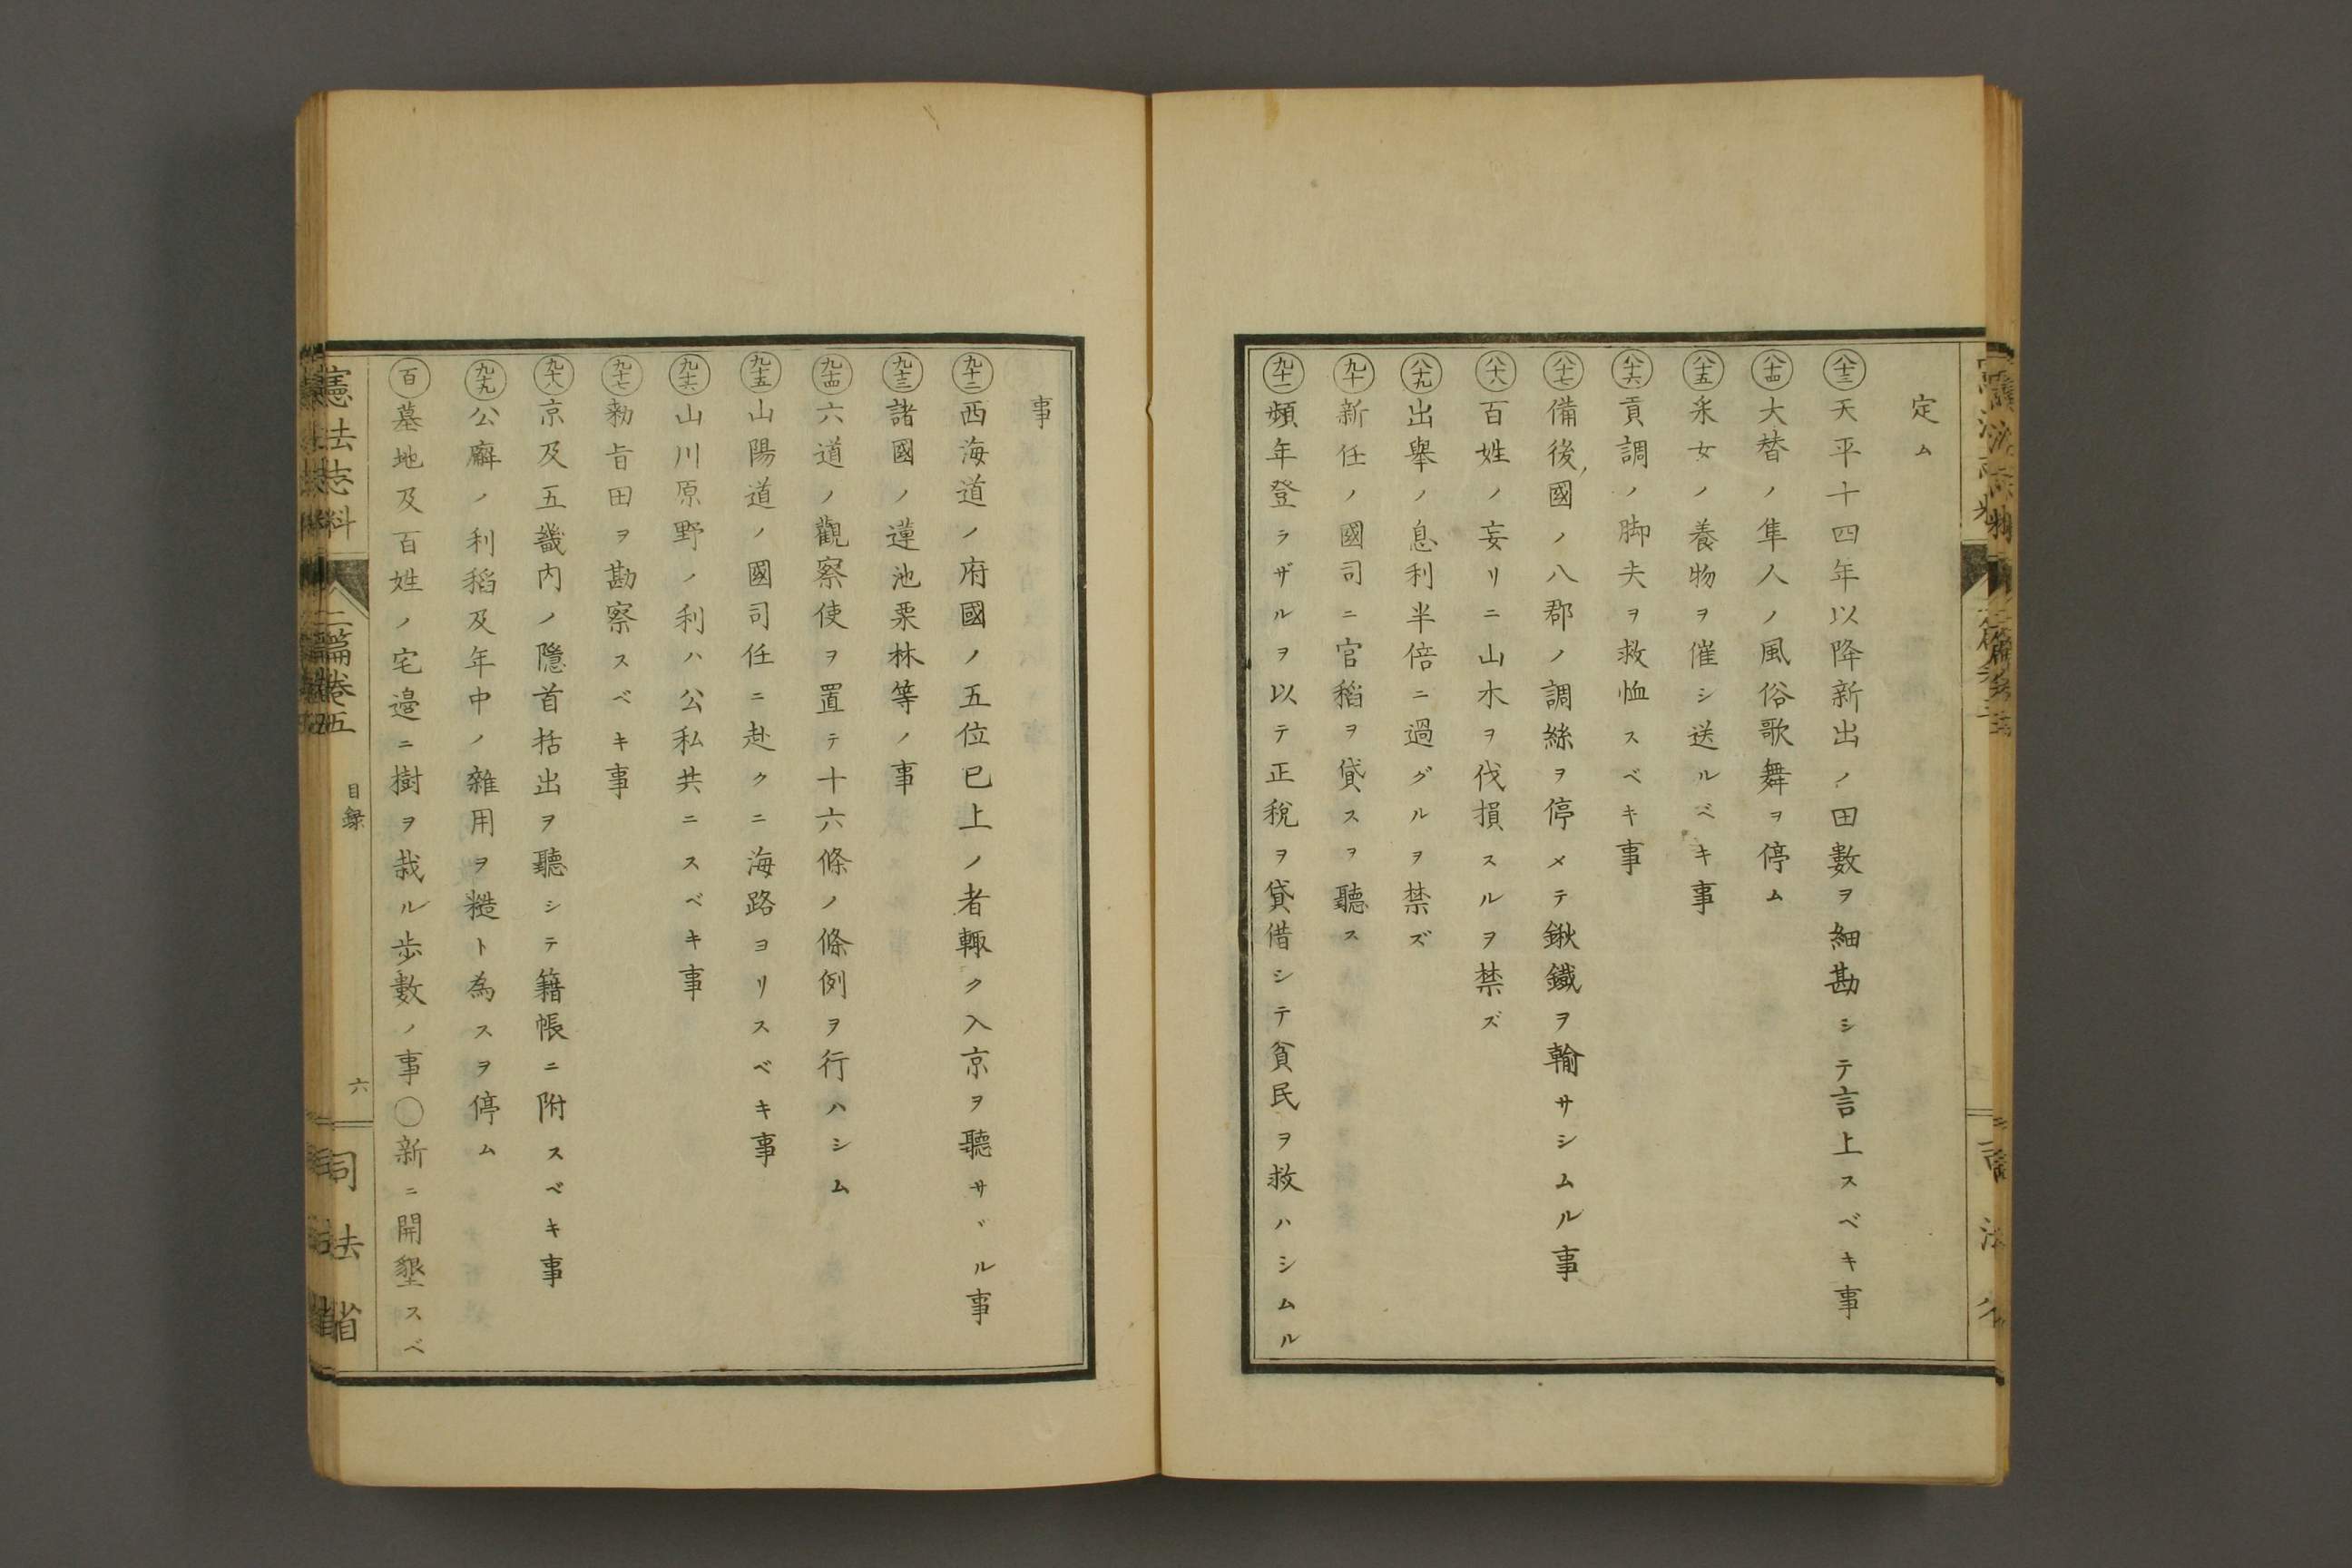 定ム
八十三 天平十四年以降新出ノ田數ヲ細勘シテ言上スベキ事
八十四 大替ノ隼人ノ風俗歌舞ヲ停ム
八十五 釆女ノ養物ヲ催シ送ルベキ事
八十六 貢調ノ脚夫ヲ救恤スベキ事
八十七 備後國ノ八郡ノ調絲ヲ停メテ鍬鐵ヲ輸サシムル事
八十八 百姓ノ妄リニ山水ヲ伐損スルヲ禁ズ
八十九 出舉ノ息利半倍ニ過グルヲ禁ズ
九十 新任ノ國司ニ官稻ヲ貸スヲ聽ス
九十一 頻年登ラザルヲ以テ正稅ヲ貸借シテ貧民ヲ救ハシムル
事
九十二 西海道ノ府國ノ五位已上ノ者輙ク入京ヲ聽サヾル事
九十三 諸國ノ蓮池栗林等ノ事
九十四 六道ノ觀察使ヲ置テ十六條ノ條例ヲ行ハシム
九十五 山陽道ノ國司任ニ赴クニ海路ヨリスベキ事
九十六 山川原野ノ利ハ公私共ニスベキ事
九十七 勅旨田ヲ勘察スベキ事
九十八 京及五畿内ノ隱首括出ヲ聽シテ籍帳ニ附スベキ事
九十九 公廨ノ利稻及年中ノ雜用ヲ糙ト為スヲ停ム
百 墓地及百姓ノ宅邉ニ樹ヲ栽ル歩數ノ事〇新ニ開墾スベ
憲法志料 二篇卷五 目録 六 司法省